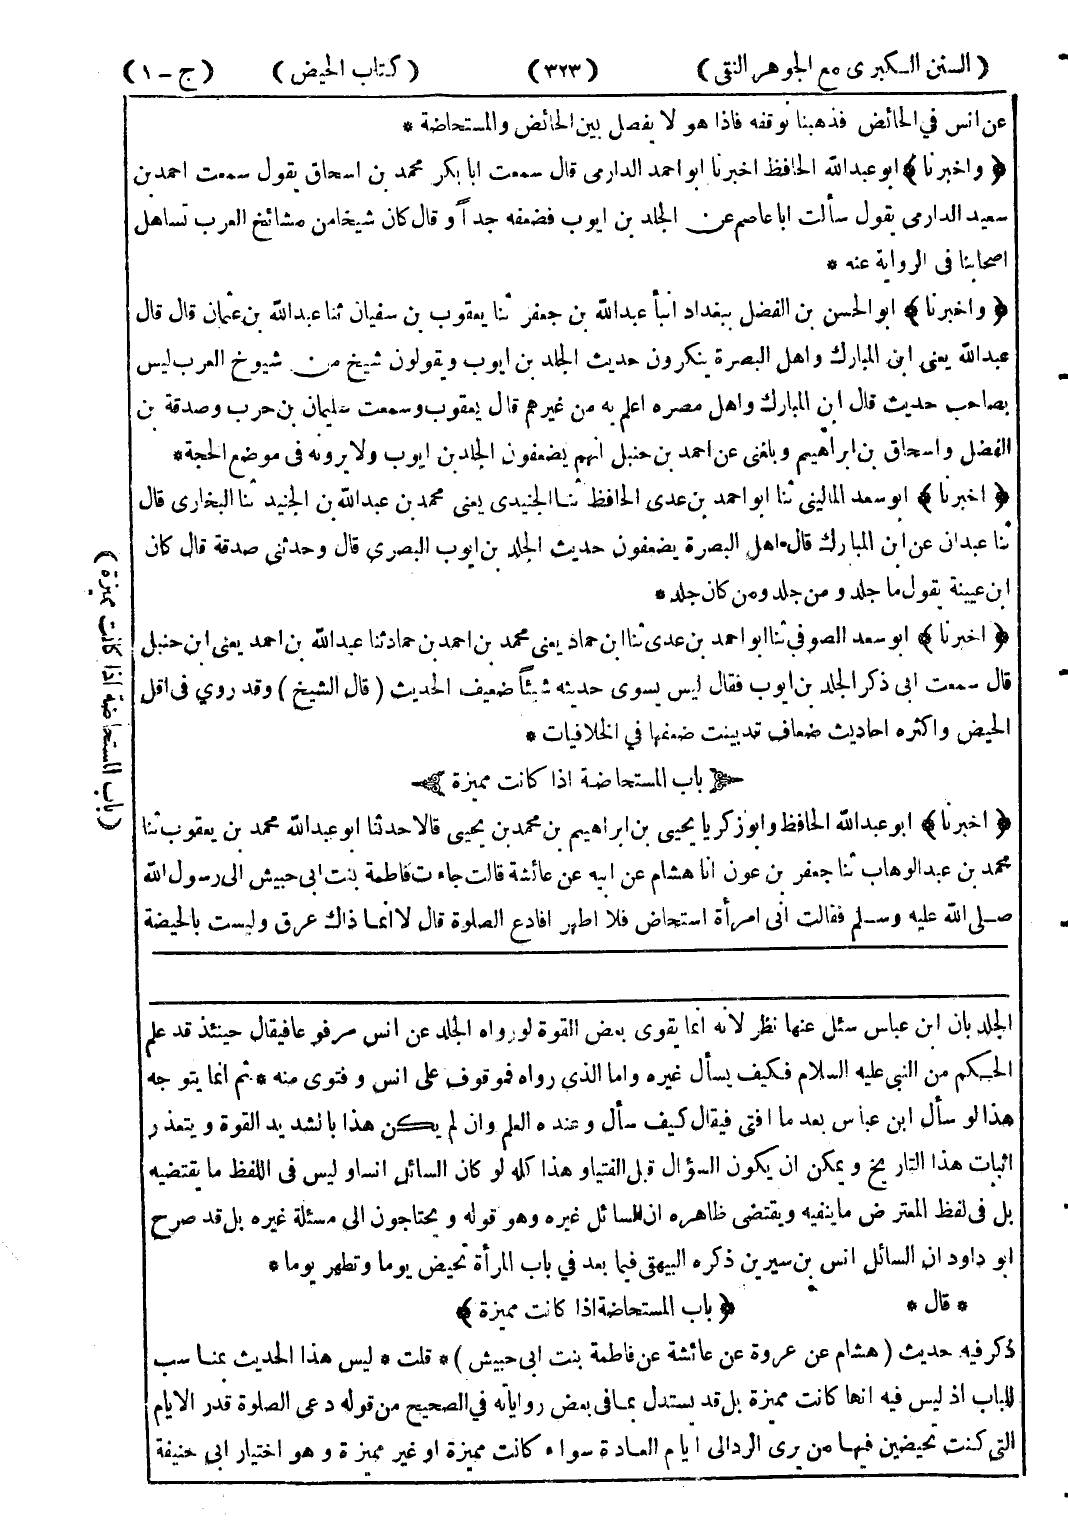 ( السنن الكبرى مع الجوهر النقى ) ( ٣٢٣ ) ( كتاب الحيض ) ( ج - ١ )
عن انس في الحائض فذهبنا نوقفه فاذا هو لا يفصل بين الحائض والمستحاضة *
﴿ واخبرنا ﴾ ابوعبدالله الحافظ اخبرنا ابو احمد الدارمى قال سمعت ابا بكر محمد بن اسحاق يقول سمعت احمد بن
سعيد الدارمى يقول سألت ابا عاصم عن الجلد بن ايوب فضعفه جداً و قال كان شيخا من مشائخ العرب تساهل
اصحابنا فى الرواية عنه *
﴿ واخبرنا ﴾ ابو الحسن بن الفضل ببغداد انبأ عبدالله بن جعفر ثنا يعقوب بن سفيان ثنا عبدالله بن عثمان قال قال
عبدالله يعنى ابن المبارك واهل البصرة ينكرون حديث الجلد بن ايوب ويقولون شيخ من شيوخ العرب ليس
بصاحب حديث قال ابن المبارك واهل مصره اعلم به من غيرهم قال يعقوب وسمعت سليمان بن حرب وصدقة بن
الفضل واسحاق بن ابراهيم وبلغنى عن احمد بن حنبل انهم يضعفون الجلد بن ايوب ولا يرونه فى موضع الحجة *
﴿ اخبرنا ﴾ ابو سعد المالينى ثنا ابو احمد بن عدى الحافظ ثنا الجنيدى يعنى محمد بن عبدالله بن الجنيد ثنا البخارى قال
ثنا عبدان عن ابن المبارك قال اهل البصرة يضعفون حديث الجلد بن ايوب البصرى قال وحدثنى صدقة قال كان
ابن عيينة يقول ما جلد و من جلد ومن كان جلد *
﴿ اخبرنا ﴾ ابو سعد الصوفي ثنا ابو احمد بن عدى ثنا ابن حماد يعنى محمد بن احمد بن حماد ثنا عبدالله بن احمد يعنى ابن حنبل
قال سمعت ابى ذكر الجلد بن ايوب فقال ليس يسوى حديثه شيئاً ضعيف الحديث ( قال الشيخ ) وقد روي فى اقل
الحيض واكثره احاديث ضعاف قد بينت ضعفها في الخلافيات *
باب المستحاضة اذا كانت مميزة
﴿ اخبرنا ﴾ ابو عبدالله الحافظ وابو زكريا يحيى بن ابراهيم بن محمد بن يحيى قالا حدثنا ابو عبدالله محمد بن يعقوب ثنا
محمد بن عبدالوهاب ثنا جعفر بن عون انا هشام عن ابيه عن عائشة قالت جاءت فاطمة بنت ابى حبيش الى رسول الله
صلى الله عليه وسلم فقالت انى امرأة استحاض فلا اطهر افادع الصلوة قال لا انما ذاك عرق وليست بالحيضة
( باب المستحاضة اذا كانت مميزة )
الجلد بان ابن عباس سئل عنها نظر لانه انما يقوى بعض القوة لو رواه الجلد عن انس مرفوعا فيقال حينئذ قد علم
الحكم من النبي عليه السلام فكيف يسأل غيره واما الذى رواه فموقوف على انس و فتوى منه * ثم انما يتوجه
هذا لو سأل ابن عباس بعد ما افتى فيقال كيف سأل وعنده العلم وان لم يكن هذا بالشديد القوة ويتعذر
اثبات هذا التاريخ و يمكن ان يكون السؤال قبل الفتيا و هذا كله لو كان السائل انسا و ليس فى اللفظ ما يقتضيه
بل فى لفظ المعترض ما ينفيه ويقتضى ظاهره ان السائل غيره وهو قوله و يحتاجون الى مسئلة غيره بل قد صرح
ابو داود ان السائل انس بن سيرين ذكره البيهقى فيما بعد في باب المرأة تحيض يوما وتطهر يوما *
* قال * ﴿ باب المستحاضة اذا كانت مميزة ﴾
ذكر فيه حديث ( هشام عن عروة عن عائشة عن فاطمة بنت ابى حبيش ) * قلت * ليس هذا الحديث بمناسب
للباب اذ ليس فيه انها كانت مميزة بل قد يستدل بما فى بعض رواياته في الصحيح من قوله دعى الصلوة قدر الايام
التى كنت تحيضين فيها من يرى الرد الى ايام العادة سواء كانت مميزة او غير مميزة و هو اختيار ابى حنيفة